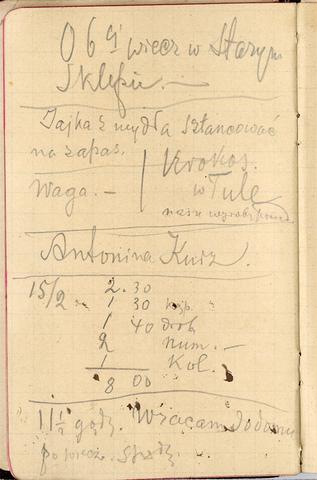 O 6ej wiecz w Starym
Sklepie. —
Jajka z mydła sztancować
na zapas.
Waga. —
Krokos.
w Tule
nasze wyroby
Antonina Kurz.
15/2 2. 30
1 30
1 40 drob
2 num. —
1 Kol.
8 00
11 ½ godz. Wracam do domu
po wiecz.